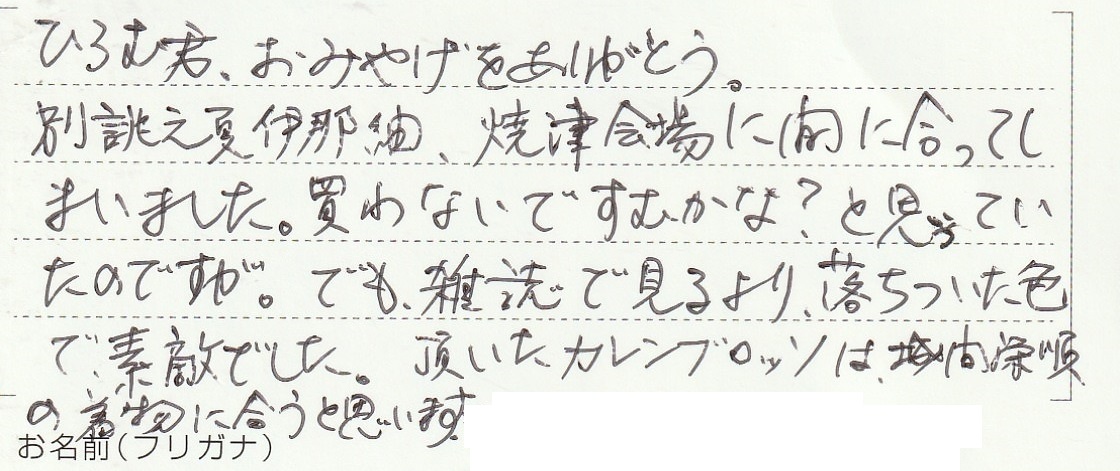 ひろむ君、おみやげをありがとう。
別誂え夏伊那紬、焼津会場に間に合ってし
まいました。買わないですむかな？と思っってい
たのですが。でも、雑誌で見るより、落ちついた色
で、素敵でした。頂いたカレンブロッソは、城間栄順
の着物に合うと思います
お名前（フリガナ）